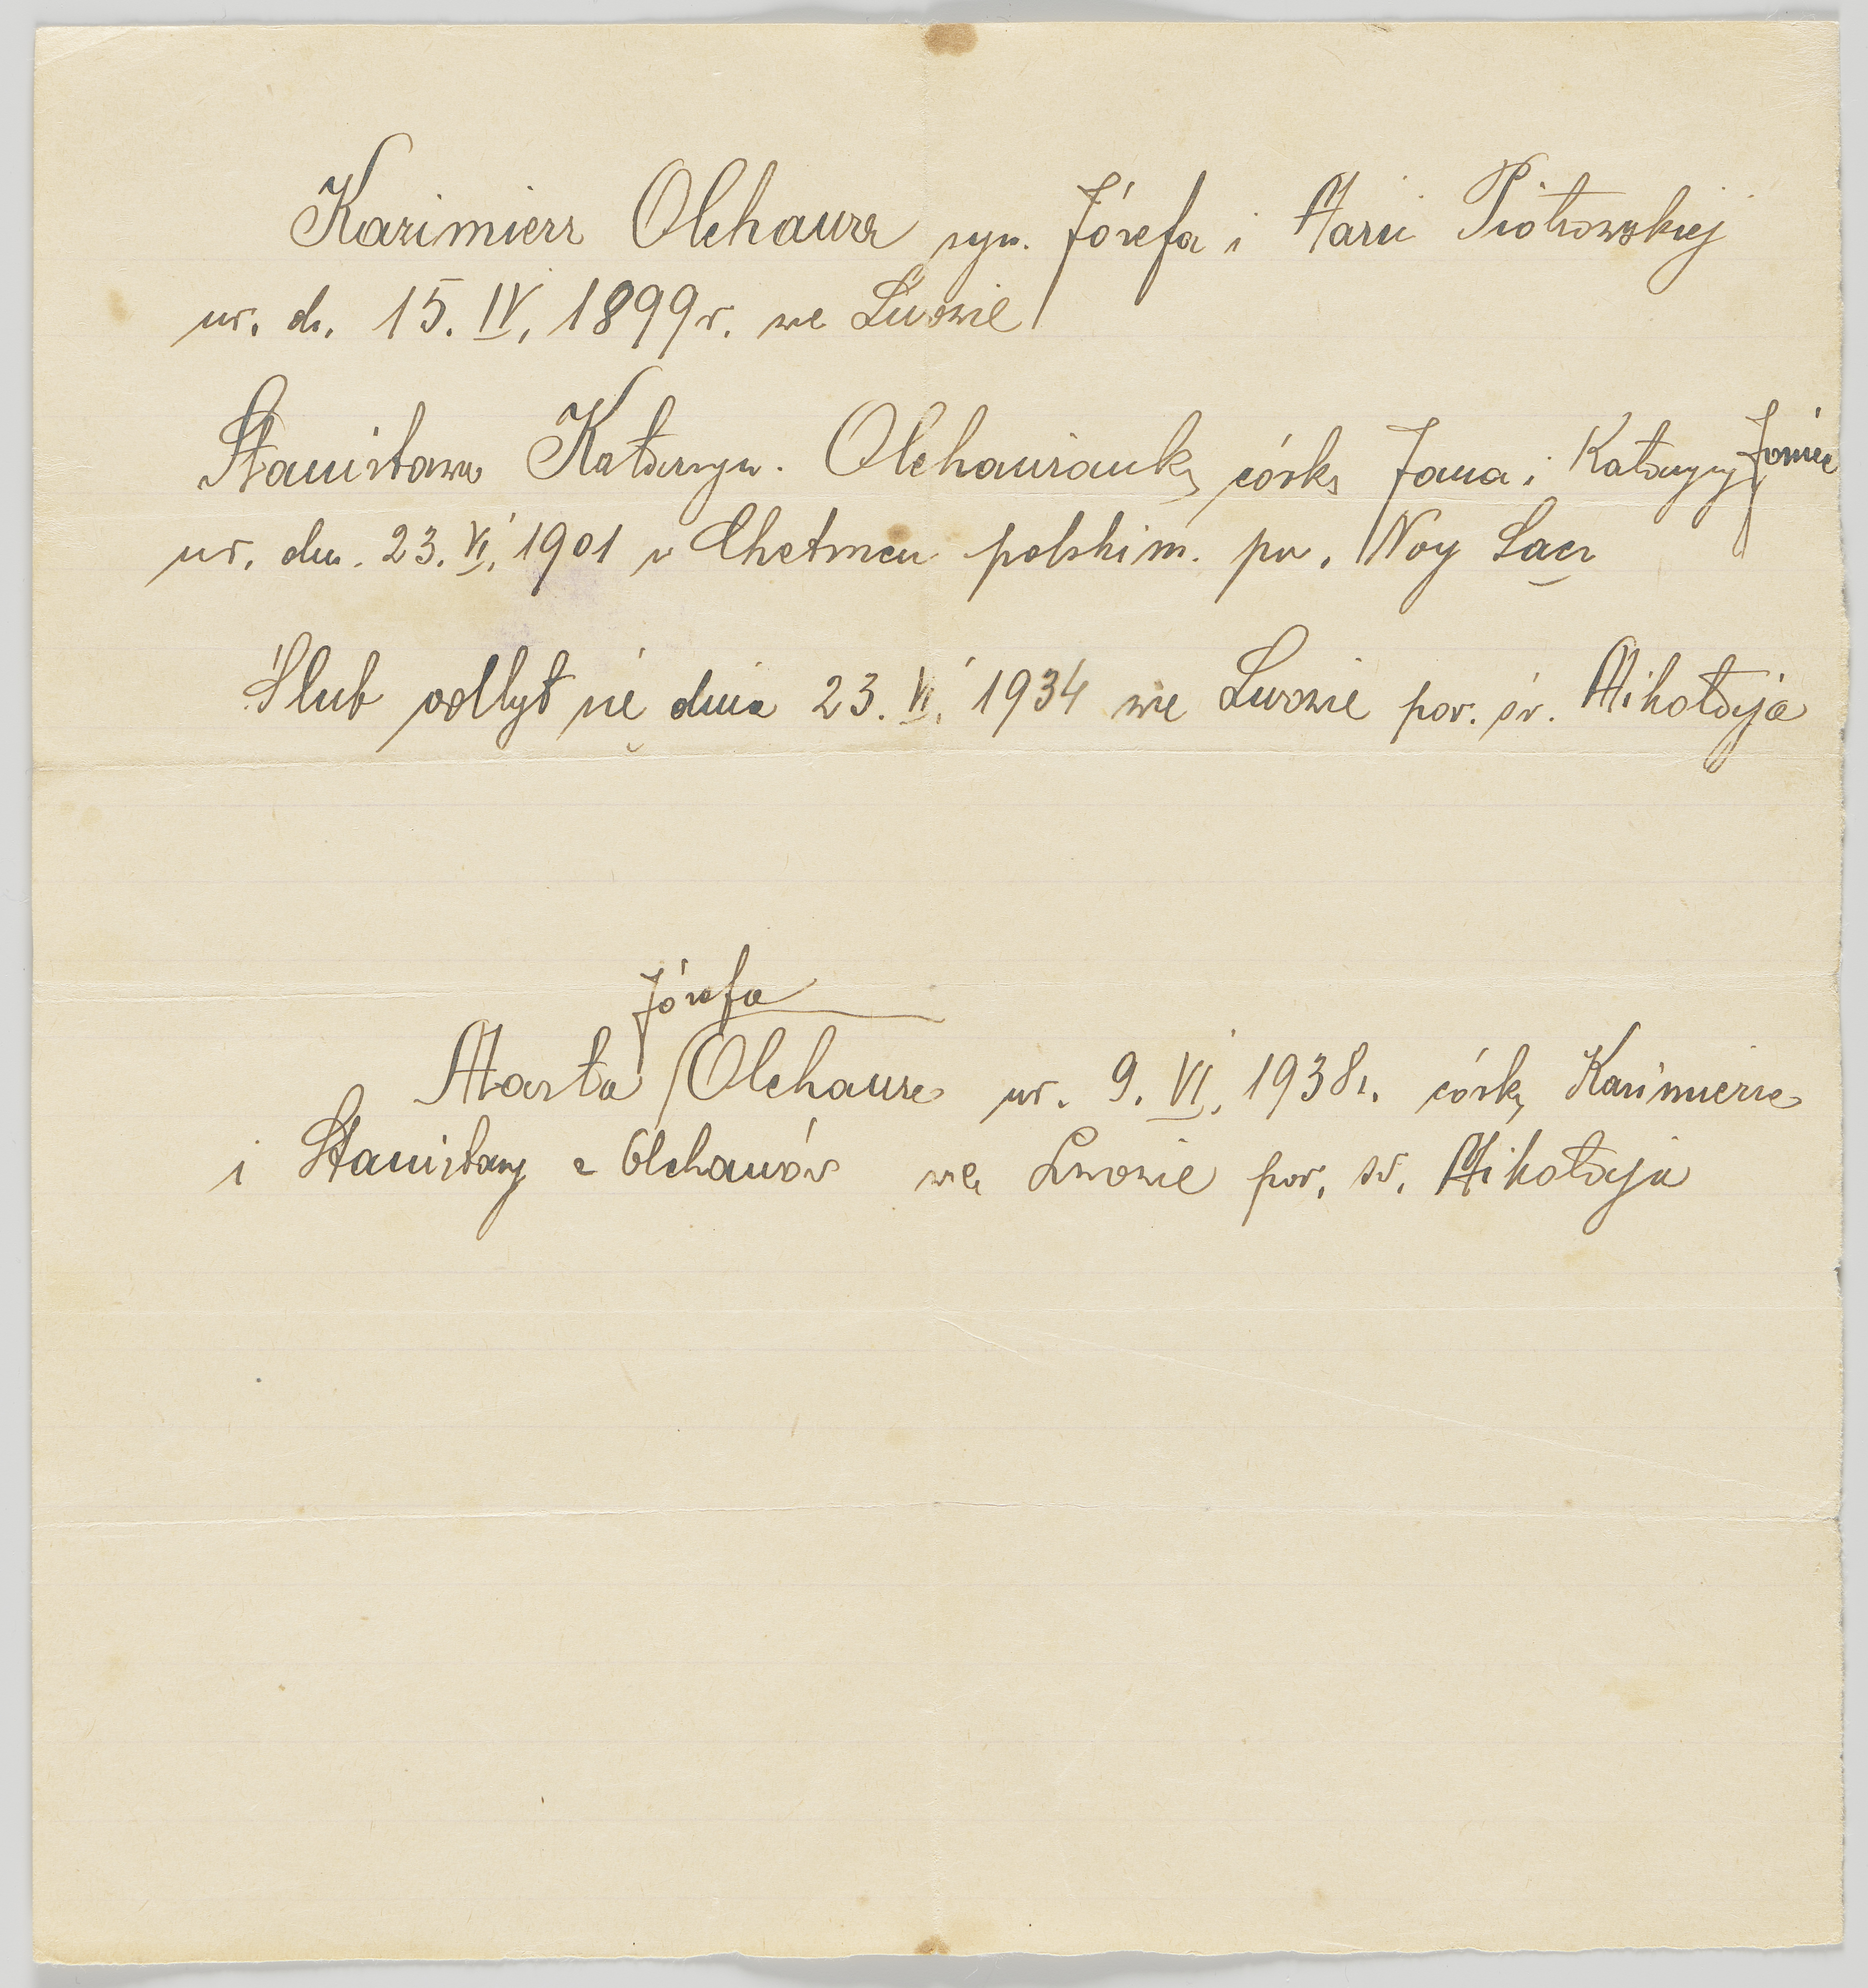 Kazimierz Olchawa syn. Józefa i Marii Piotrowskiej
ur. d. 15. IV. 1899 r. we Lwowie
Stanisława Katarzyn. Olchawianka córka Jana i Katarzyny Joniec
ur. dn. 23. VI. 1901 w Chełmcu polskim. pow. Nowy Sącz
Ślub odbył się dnia 23. VI. 1934 we Lwowie par. św. Mikołaja
Józefa
Marta Olchawa ur. 9. VI. 1938 r. córka Kazimierza
i Stanisławy z Olchawów we Lwowie par. św. Mikołaja